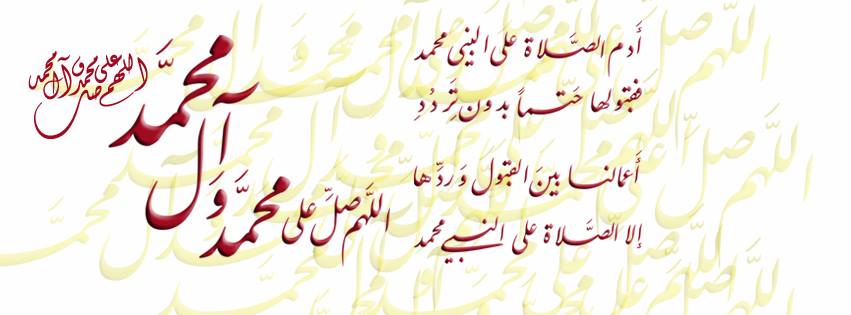 أَدم الصَّلاة على النبي محمد
فقبولها حَتماً بدون تَردُدِ
أَعمالنا بينَ القبولَ وَردِّها
إلا الصَّلاة على النبي محمد
اللهم صل على محمد وآل محمد
اللهَم صَلِّ على محمَّد وَآل محمَّد